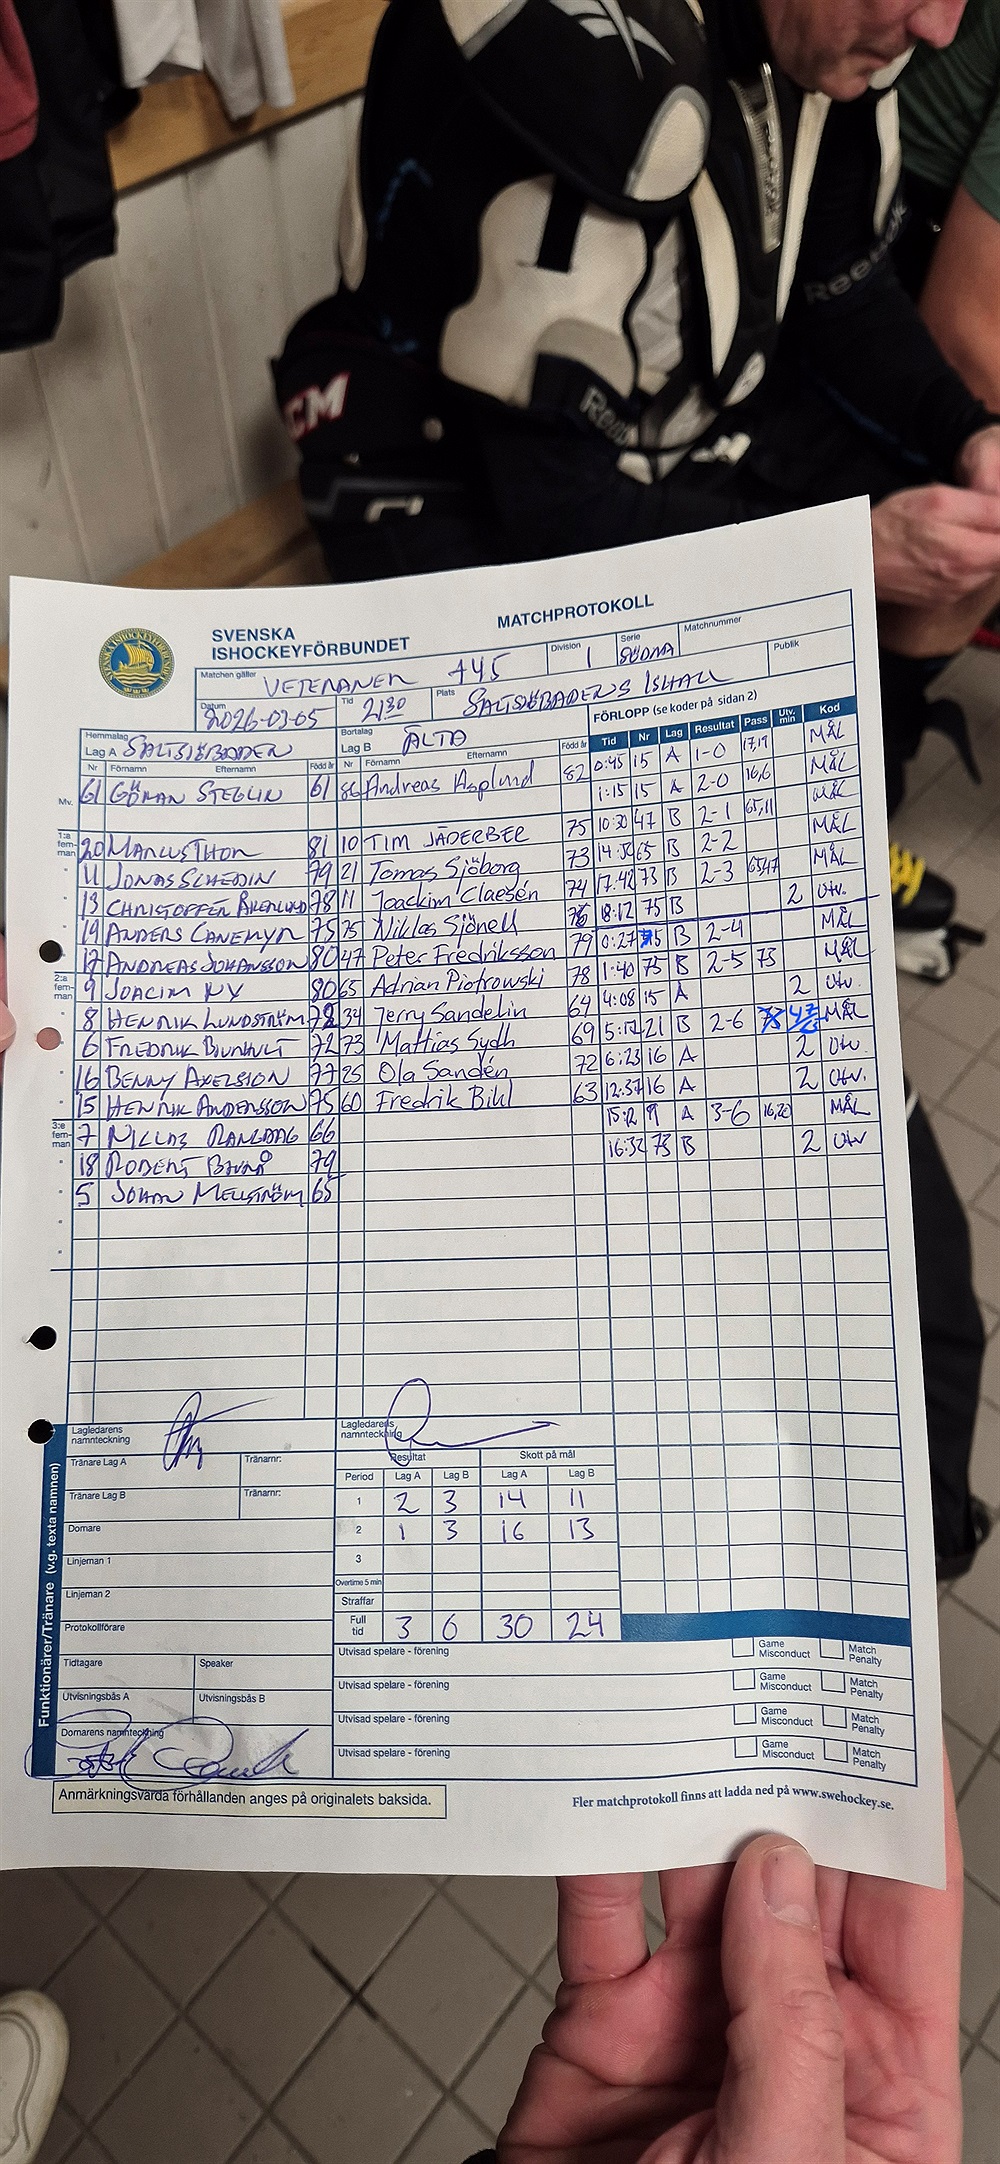 Reebok
Reebok
CCM
SVENSKA
ISHOCKEYFÖRBUNDET
MATCHPROTOKOLL
Matchen gäller VETERANER +45
Division 1
Serie SÖDRA
Matchnummer
Datum 2026-03-05
Tid 21:30
Plats SALTSJÖBADENS ISHALL
Publik
Hemmalag
Lag A SALTSJÖBADEN
Bortalag
Lag B ÄLTA
FÖRLOPP (se koder på sidan 2)
Nr Förnamn Efternamn Född år Nr Förnamn Efternamn Född år
Tid Nr Lag Resultat Pass Utv. min Kod
Mv. 61 GÖRAN STEGLIN 61 86 Andreas Asplund 82 0:45 15 A 1-0 17,19 MÅL
1:15 15 A 2-0 16,6 MÅL
1:a fem-man 20 MARCUS THOR 81 10 TIM JÄDERBER 75 10:30 47 B 2-1 65,11 MÅL
11 JONAS SCHEDIN 79 21 Tomas Sjöborg 73 14:36 65 B 2-2 MÅL
13 CHRISTOFFER ÅKERLUND 78 11 Joackim Claesén 74 17:42 73 B 2-3 65,47 MÅL
19 ANDERS CANEMYR 75 75 Niklas Sjönell 76 18:12 75 B 2 Utv.
17 ANDREAS JOHANSSON 80 47 Peter Fredriksson 79 0:27 75 B 2-4 MÅL
2:a fem-man 9 JOACIM NY 80 65 Adrian Piotrowski 78 1:40 75 B 2-5 73 MÅL
8 HENRIK LUNDSTRÖM 72 34 Jerry Sandelin 64 4:08 15 A 2 Utv
6 FREDRIK BJURHULT 72 73 Mattias Sydh 69 5:12 21 B 2-6 MÅL
16 BENNY AXELSSON 77 25 Ola Sandén 72 6:23 16 A 2 Utv.
15 HENRIK ANDERSSON 75 60 Fredrik Bihl 63 12:37 16 A 2 Utv.
3:e fem-man 7 NICLAS 66 15:12 9 A 3-6 16,20 MÅL
18 ROBERT 79 16:32 73 B 2 Utv
5 JOHAN MELLSTRÖM 65
Lagledarens namnteckning
Lagledarens namnteckning
Funktionärer/Tränare (v.g. texta namnen)
Tränare Lag A
Tränarnr:
Tränare Lag B
Tränarnr:
Domare
Linjeman 1
Linjeman 2
Protokollförare
Tidtagare
Speaker
Utvisningsbås A
Utvisningsbås B
Domarens namnteckning
Resultat Skott på mål
Period Lag A Lag B Lag A Lag B
1 2 3 14 11
2 1 3 16 13
3
Overtime 5 min
Straffar
Full tid 3 6 30 24
Utvisad spelare - förening Game Misconduct Match Penalty
Utvisad spelare - förening Game Misconduct Match Penalty
Utvisad spelare - förening Game Misconduct Match Penalty
Utvisad spelare - förening Game Misconduct Match Penalty
Anmärkningsvärda förhållanden anges på originalets baksida.
Fler matchprotokoll finns att ladda ned på www.swehockey.se.